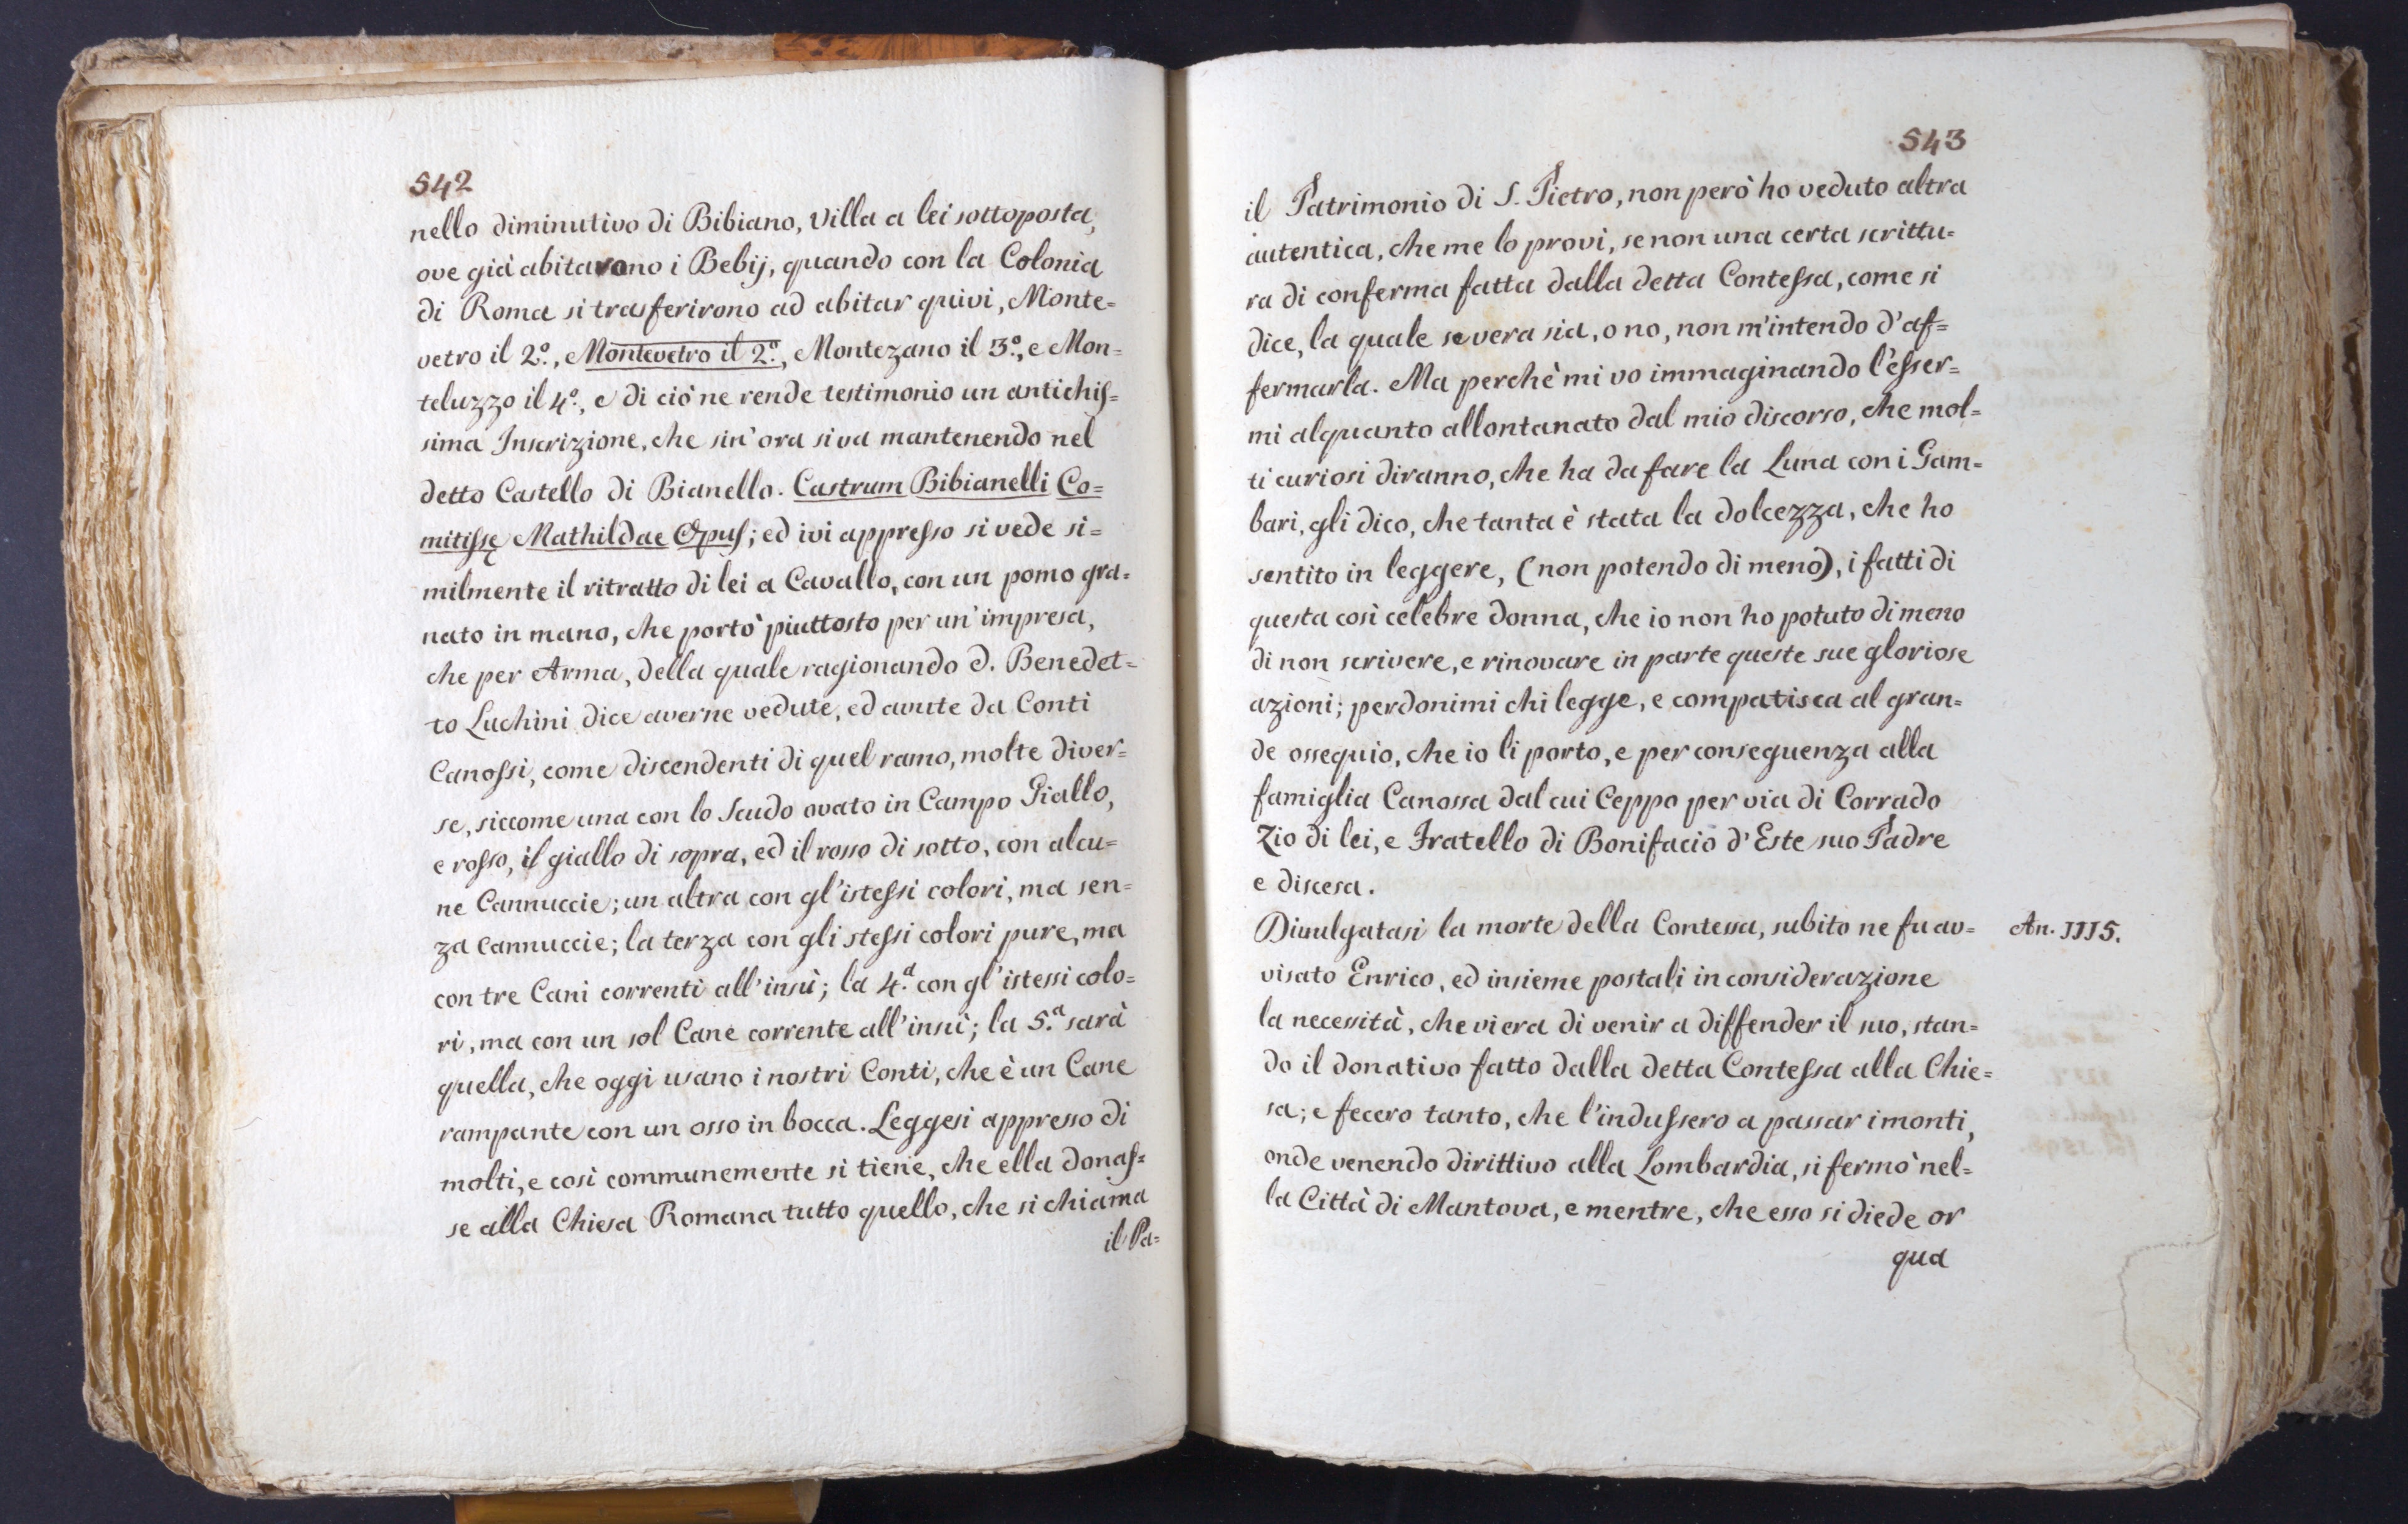 542
nello diminutivo di Bibiano, Villa a lei sottoposta,
ove già abitavono i Bebij, quando con la Colonia
di Roma si trasferirono ad abitar quivi, Monte=
vetro il 2.º, e Montevetro il 2.º, Montezano il 3.º, e Mon=
teluzzo il 4.º, e di ciò ne rende testimonio un antichiſ=
sima Inscrizione, che sin'ora si va mantenendo nel
detto Castello di Bianello. Castrum Bibianelli Co=
mitiſsę Mathildae Opuſ; ed ivi appreſso si vede si=
milmente il ritratto di lei a Cavallo, con un pomo gra=
nato in mano, che portò piuttosto per un'impresa,
che per Arma, della quale ragionando D. Benedet=
to Luchini dice averne vedute, ed avute da Conti
Canoſsi, come discendenti di quel ramo, molte diver=
se, siccome una con lo Scudo ovato in Campo Giallo,
e roſso, il giallo di sopra, ed il rosso di sotto, con alcu=
ne Cannuccie; un altra con gl'isteſsi colori, ma sen=
za cannuccie; la terza con gli steſsi colori pure, ma
con tre Cani correnti all'insù; la 4.ª con gl'istessi colo=
ri, ma con un sol Cane corrente all'insù; la 5.ª sarà
quella, che oggi usano i nostri Conti, che è un Cane
rampante con un osso in bocca. Leggesi appresso di
molti, e così communemente si tiene, che ella donaſ=
se alla Chiesa Romana tutto quello, che si chiama
il Pa=
543
il Patrimonio di S. Pietro, non però ho veduto altra
autentica, che me lo provi, se non una certa scrittu=
ra di conferma fatta dalla detta Conteſsa, come si
dice, la quale se vera sia, o no, non m'intendo d'af=
fermarla. Ma perchè mi vo immaginando l'eſser=
mi alquanto allontanato dal mio discorso, che mol=
ti curiosi diranno, che ha da fare la Luna con i Gam=
bari, gli dico, che tanta è stata la dolcezza, che ho
sentito in leggere, (non potendo di meno), i fatti di
questa così celebre donna, che io non ho potuto di meno
di non scrivere, e rinovare in parte queste sue gloriose
azioni; perdonimi chi legge, e compatisca al gran=
de ossequio, che io li porto, e per conseguenza alla
famiglia Canossa dal cui Ceppo per via di Corrado
Zio di lei, e Fratello di Bonifacio d'Este suo Padre
e discesa.
Divulgatasi la morte della Contessa, subito ne fu av=
An. 1115.
visato Enrico, ed insieme postali in considerazione
la necessità, che vi era di venir a diffender il suo, stan=
do il donativo fatto dalla detta Conteſsa alla Chie=
sa; e fecero tanto, che l'induſsero a passar i monti,
onde venendo dirittivo alla Lombardia, si fermò nel=
la Città di Mantova, e mentre, che esso si diede or
qua